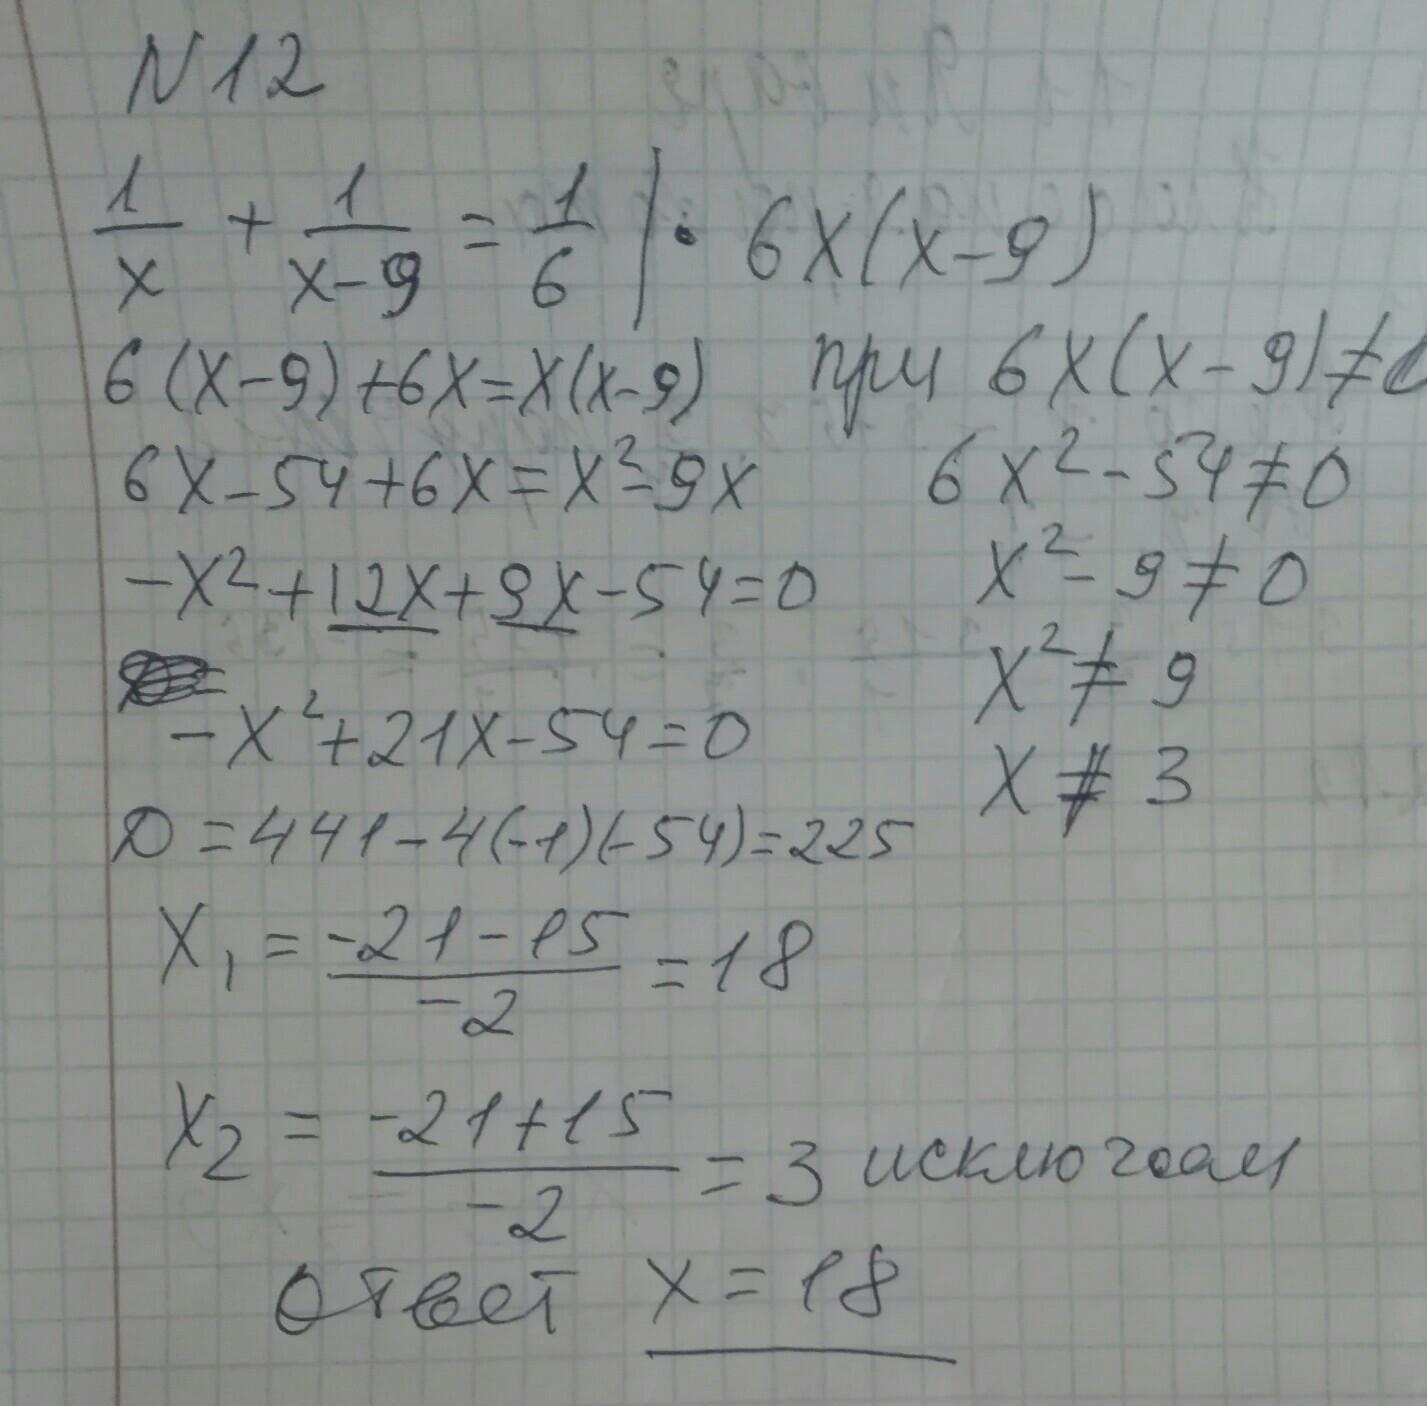 N12
1/x + 1/(x-9) = 1/6 | · 6x(x-9)
6(x-9)+6x=x(x-9) при 6x(x-9)≠0
6x-54+6x=x²-9x 6x²-54≠0
-x²+12x+9x-54=0 x²-9≠0
x²≠9
-x²+21x-54=0
x≠3
D=441-4(-1)(-54)=225
x₁=(-21-15)/(-2)=18
x₂=(-21+15)/(-2)=3 исключаем
Ответ x=18